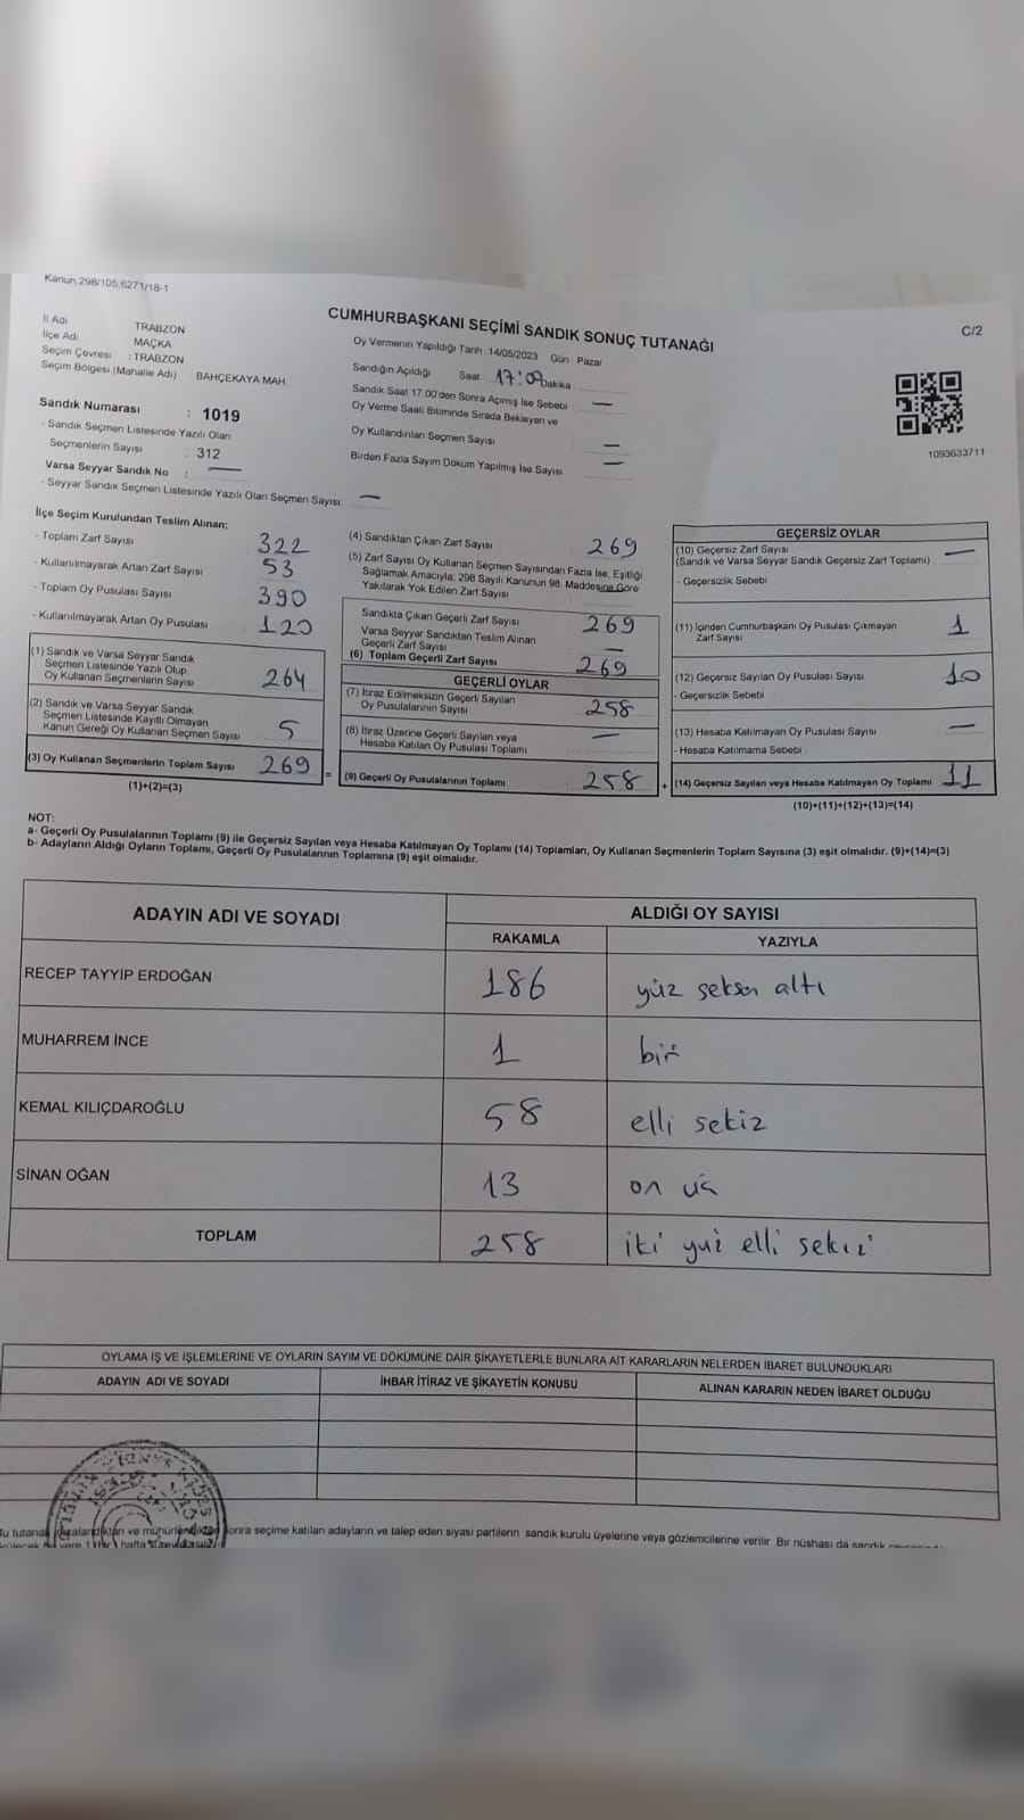 Kanun 298/105,6271/18-1
CUMHURBAŞKANI SEÇİMİ SANDIK SONUÇ TUTANAĞI
C/2
İl Adı TRABZON
İlçe Adı MAÇKA
Seçim Çevresi : TRABZON
Seçim Bölgesi (Mahalle Adı) BAHÇEKAYA MAH.
Oy Vermenin Yapıldığı Tarih: 14/05/2023 Gün: Pazar
Sandığın Açıldığı Saat 17:00 Dakika
Sandık Saat 17.00'den Sonra Açılmış İse Sebebi —
Oy Verme Saati Bitiminde Sırada Bekleyen ve
Oy Kullandırılan Seçmen Sayısı —
Birden Fazla Sayım Döküm Yapılmış İse Sayısı —
1093633711
Sandık Numarası : 1019
- Sandık Seçmen Listesinde Yazılı Olan
Seçmenlerin Sayısı : 312
Varsa Seyyar Sandık No : —
- Seyyar Sandık Seçmen Listesinde Yazılı Olan Seçmen Sayısı: —
İlçe Seçim Kurulundan Teslim Alınan;
- Toplam Zarf Sayısı 322
- Kullanılmayarak Artan Zarf Sayısı 53
- Toplam Oy Pusulası Sayısı 390
- Kullanılmayarak Artan Oy Pusulası 120
(1) Sandık ve Varsa Seyyar Sandık
Seçmen Listesinde Yazılı Olup
Oy Kullanan Seçmenlerin Sayısı 264
(2) Sandık ve Varsa Seyyar Sandık
Seçmen Listesinde Kayıtlı Olmayan
Kanun Gereği Oy Kullanan Seçmen Sayısı 5
(3) Oy Kullanan Seçmenlerin Toplam Sayısı 269
(1)+(2)=(3)
=
(4) Sandıktan Çıkan Zarf Sayısı 269
(5) Zarf Sayısı Oy Kullanan Seçmen Sayısından Fazla İse, Eşitliği
Sağlamak Amacıyla; 298 Sayılı Kanunun 98. Maddesine Göre
Yakılarak Yok Edilen Zarf Sayısı
Sandıkta Çıkan Geçerli Zarf Sayısı 269
Varsa Seyyar Sandıktan Teslim Alınan
Geçerli Zarf Sayısı —
(6) Toplam Geçerli Zarf Sayısı 269
GEÇERLİ OYLAR
(7) İtiraz Edilmeksizin Geçerli Sayılan
Oy Pusulalarının Sayısı 258
(8) İtiraz Üzerine Geçerli Sayılan veya
Hesaba Katılan Oy Pusulası Toplamı —
(9) Geçerli Oy Pusulalarının Toplamı 258
+
GEÇERSİZ OYLAR
(10) Geçersiz Zarf Sayısı —
(Sandık ve Varsa Seyyar Sandık Geçersiz Zarf Toplamı)
- Geçersizlik Sebebi
(11) İçinden Cumhurbaşkanı Oy Pusulası Çıkmayan
Zarf Sayısı 1
(12) Geçersiz Sayılan Oy Pusulası Sayısı 10
- Geçersizlik Sebebi
(13) Hesaba Katılmayan Oy Pusulası Sayısı —
- Hesaba Katılmama Sebebi
(14) Geçersiz Sayılan veya Hesaba Katılmayan Oy Toplamı 11
(10)+(11)+(12)+(13)=(14)
NOT:
a- Geçerli Oy Pusulalarının Toplamı (9) ile Geçersiz Sayılan veya Hesaba Katılmayan Oy Toplamı (14) Toplamları, Oy Kullanan Seçmenlerin Toplam Sayısına (3) eşit olmalıdır. (9)+(14)=(3)
b- Adayların Aldığı Oyların Toplamı, Geçerli Oy Pusulalarının Toplamına (9) eşit olmalıdır.
ADAYIN ADI VE SOYADI
ALDIĞI OY SAYISI
RAKAMLA YAZIYLA
RECEP TAYYİP ERDOĞAN 186 yüz seksen altı
MUHARREM İNCE 1 bir
KEMAL KILIÇDAROĞLU 58 elli sekiz
SİNAN OĞAN 13 on üç
TOPLAM 258 iki yüz elli sekiz
OYLAMA İŞ VE İŞLEMLERİNE VE OYLARIN SAYIM VE DÖKÜMÜNE DAİR ŞİKAYETLERLE BUNLARA AİT KARARLARIN NELERDEN İBARET BULUNDUKLARI
ADAYIN ADI VE SOYADI İHBAR İTİRAZ VE ŞİKAYETİN KONUSU ALINAN KARARIN NEDEN İBARET OLDUĞU
sonra seçime katılan adayların ve talep eden siyasi partilerin sandık kurulu üyelerine veya gözlemcilerine verilir. Bir nüshası da sandık